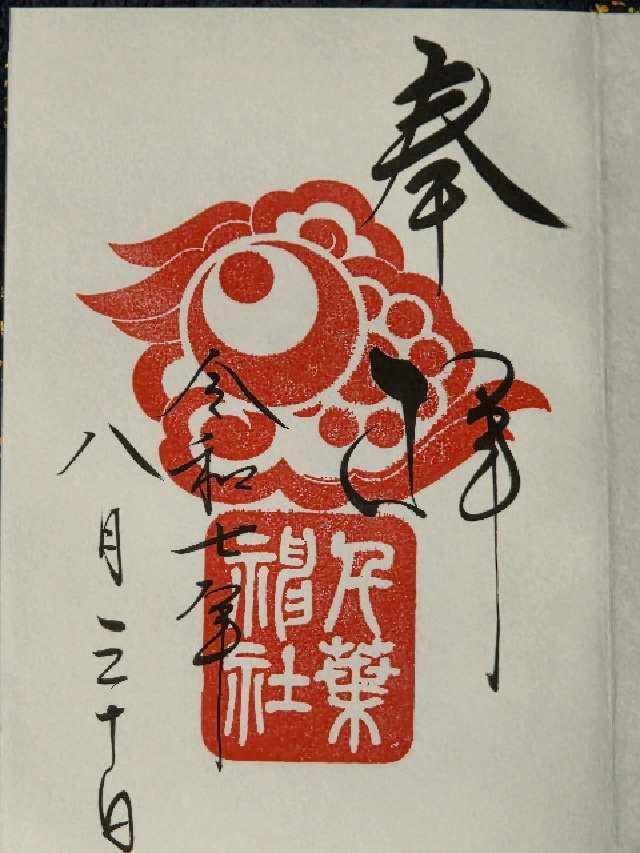 奉拝
千葉
神社
令和七年
八月三十日